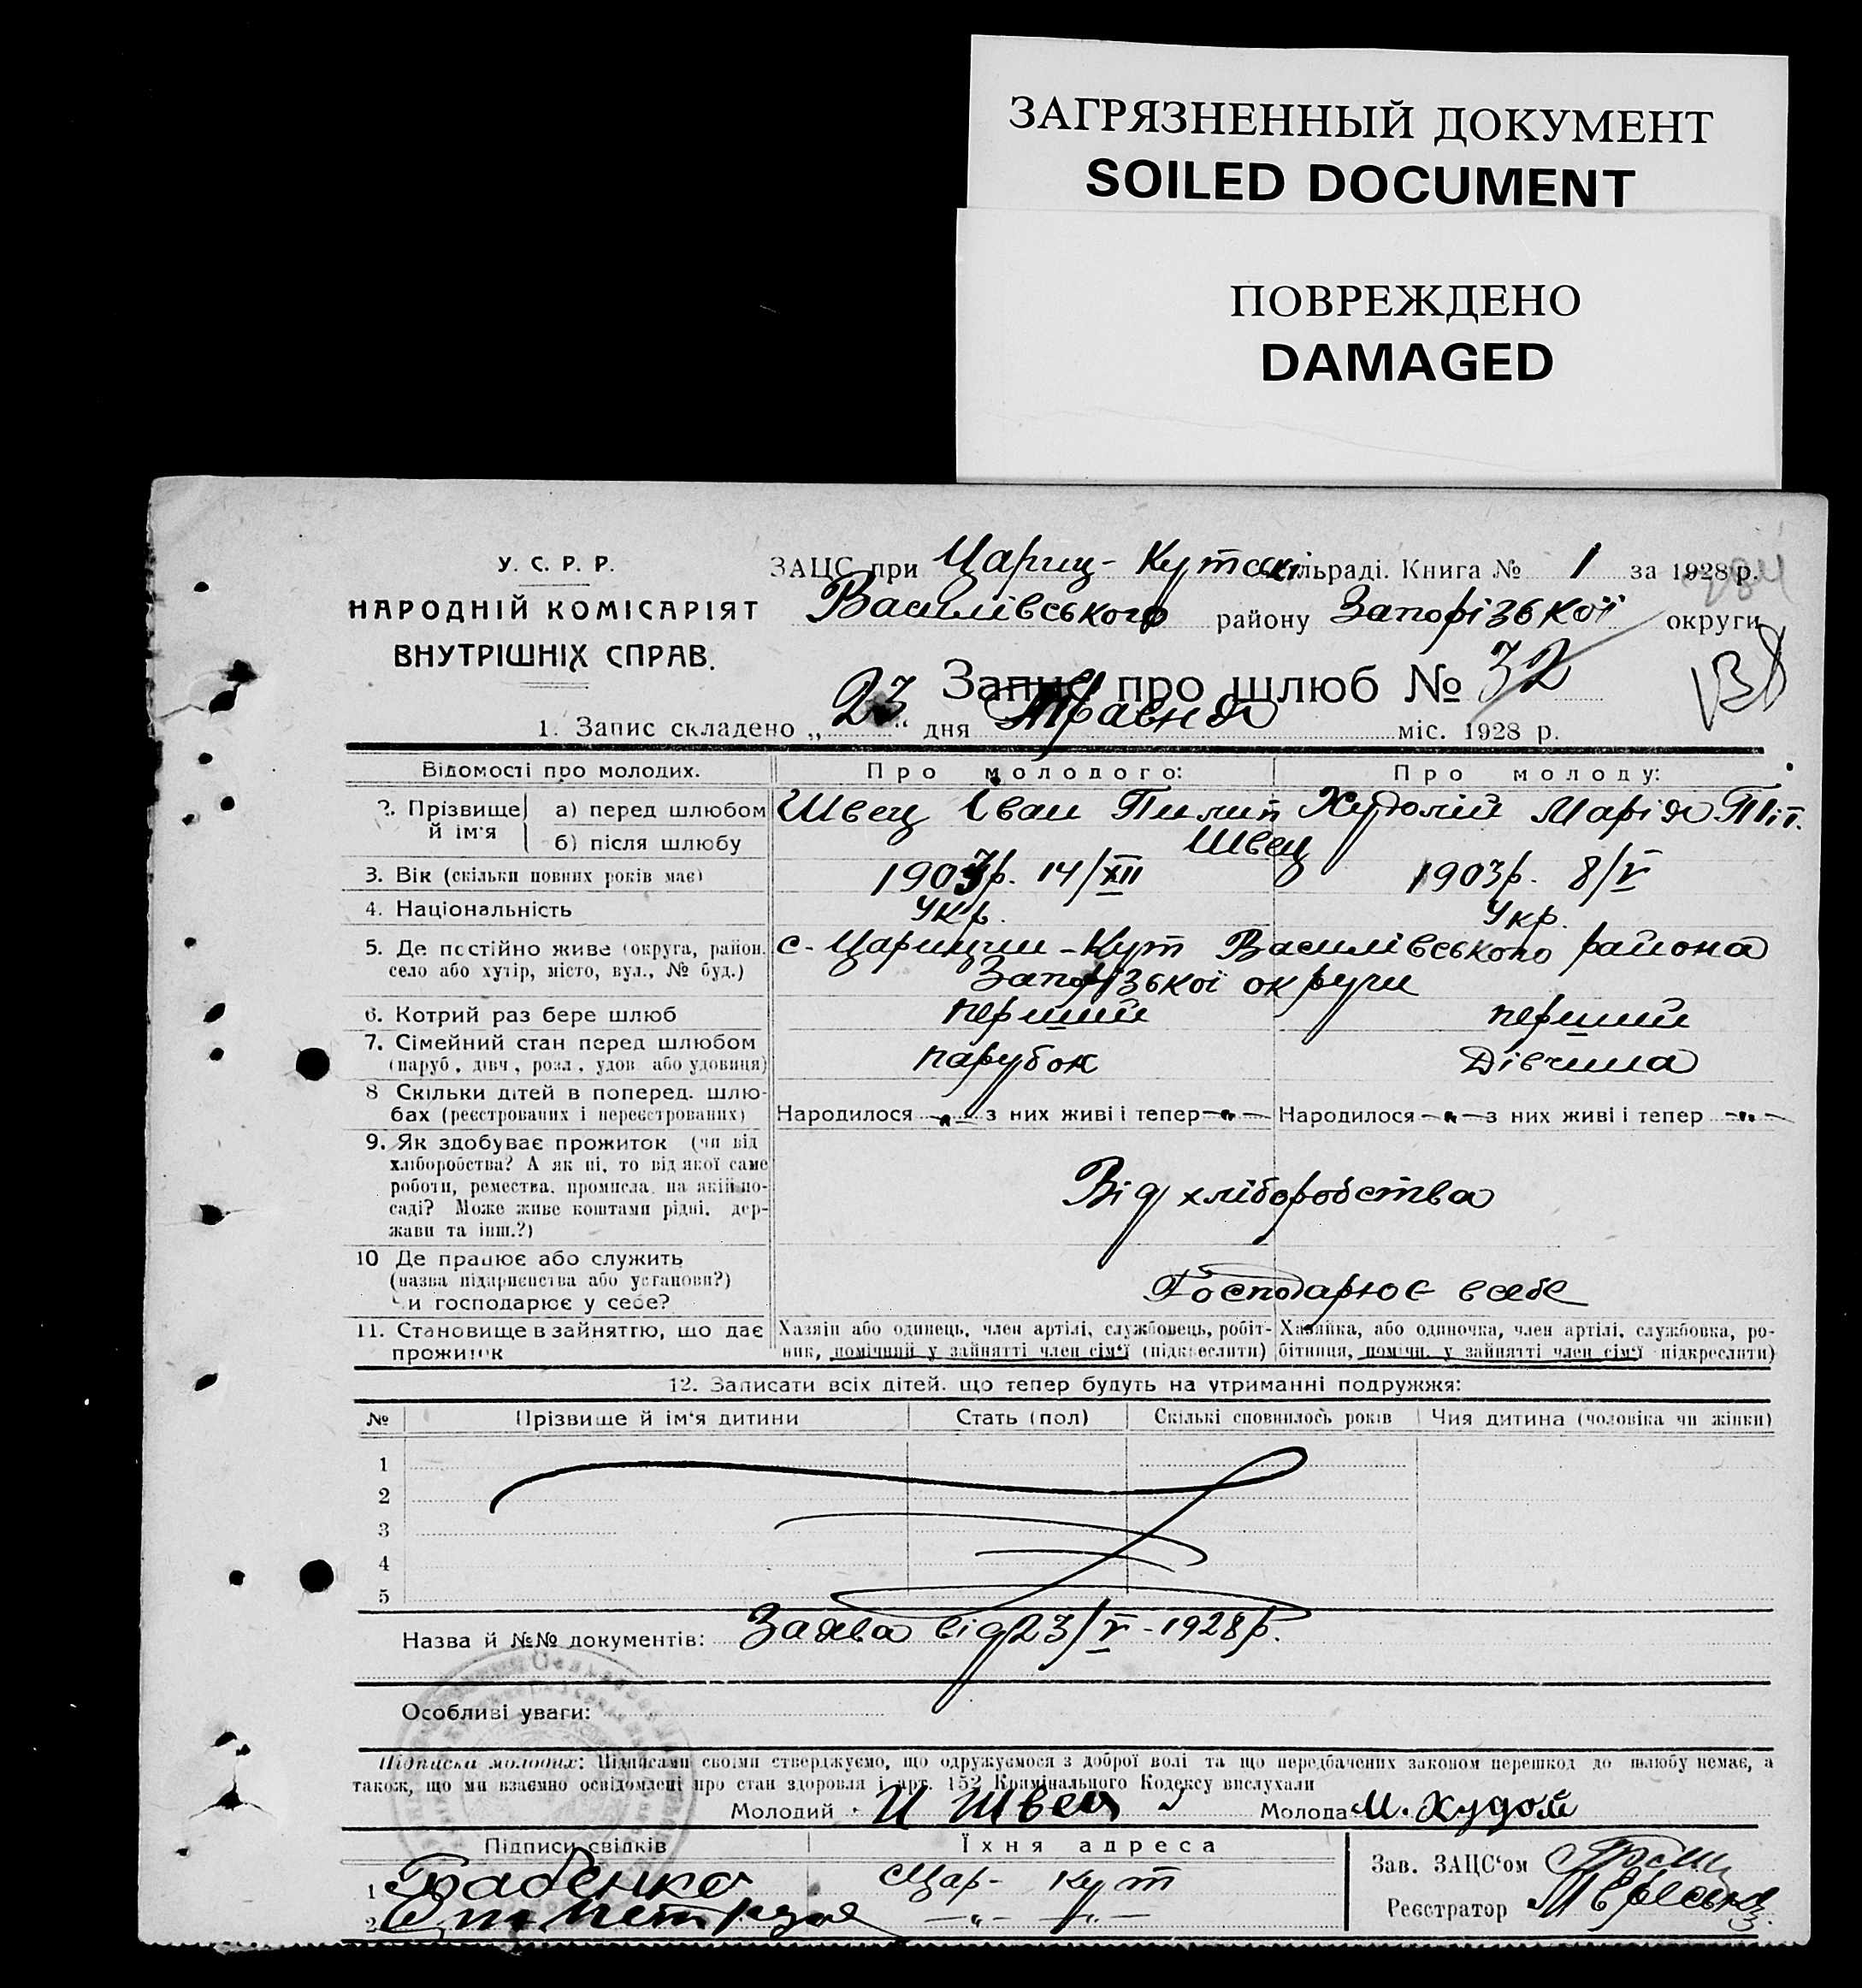 ЗАГРЯЗНЕННЫЙ ДОКУМЕНТ
SOILED DOCUMENT
ПОВРЕЖДЕНО
DAMAGED
У. С. Р. Р.
НАРОДНІЙ КОМІСАРІЯТ
ВНУТРІШНІХ СПРАВ.
ЗАЦС при Цариц-Кутськ сільраді. Книга № 1 за 1928 р.
Василівського району Запорізької округи
Запис про шлюб № 32
138
1. Запис складено „23“ дня Травня міс. 1928 р.
Відомості про молодих. Про молодого: Про молоду:
2. Прізвище й ім'я а) перед шлюбом Швец Іван Пилип Худолій Марія Піт.
б) після шлюбу Швец
3. Вік (скільки повних років має) 1903р. 14/XII 1903р. 8/V
4. Національність Укр. Укр.
5. Де постійно живе (округа, район, с-Царицин-Кут Василівського района
село або хутір, місто, вул., № буд.) Запорізької округи
6. Котрий раз бере шлюб перший перший
7. Сімейний стан перед шлюбом парубок Дівчина
(паруб., дівч., розл., удов. або удовиця)
8 Скільки дітей в поперед. шлю-
бах (реєстрованих і нереєстрованих) Народилося з них живі і тепер Народилося з них живі і тепер
9. Як здобуває прожиток (чи від
хліборобства? А як ні, то від якої саме
роботи, ремества, промисла, на якій по-
саді? Може живе коштами рідні, дер-
жави та інш.?)
Від хліборобства
10 Де працює або служить
(назва підприємства або установи?)
Чи господарює у себе? Господарює в себе
11. Становище в зайняттю, що дає Хазяїн або одинець, член артілі, службовець, робіт- Хазяйка, або одиночка, член артілі, службовка, ро-
прожиток ник, помічний у зайнятті член сім'ї (підкреслити) бітниця, помічн. у зайнятті член сім'ї підкреслити)
12. Записати всіх дітей, що тепер будуть на утриманні подружжя:
№ Прізвище й ім'я дитини Стать (пол) Скількі сповнилось років Чия дитина (чоловіка чи жінки)
1
2
3
4
5
Назва й №№ документів: Заява від 23/V-1928р.
Особливі уваги:
Підписка молодих: Підписами своїми стверджуємо, що одружуємося з доброї волі та що передбачених законом перешкод до шлюбу немає, а
також, що ми взаємно освідомлені про стан здоровля і арт. 152 Кримінального Кодексу вислухали
Молодий И Швец Молода М. Худолій
Підписи свідків Їхня адреса
1 Грабенко Цар- Кут
2 -"- -"-
Зав. ЗАЦС'ом
Реєстратор